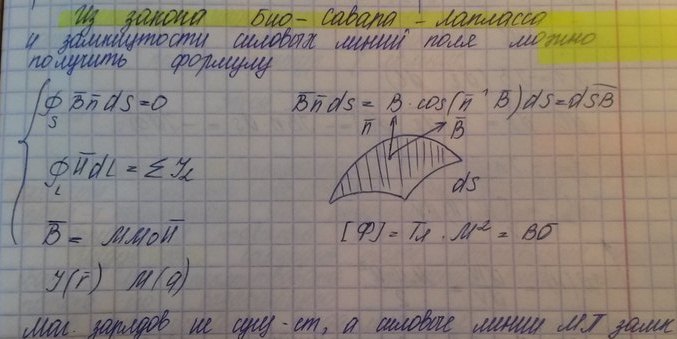 Из закона Био-Савара-Лапласса
и замкнутости силовых линий поля можно
получить формулу
∮_S B̅n̅ds=0
B̅n̅ds = B·cos(n̅^B̅)ds = ds̅B̅
n̅ B̅
∮_L H̅dL = ΣI
ds
B̅ = ММ₀H̅
[Ф] = Тл · М² = Вб
(r̅) М(q)
Маг. зарядов не сущ-ст, а силовые линии МП замк